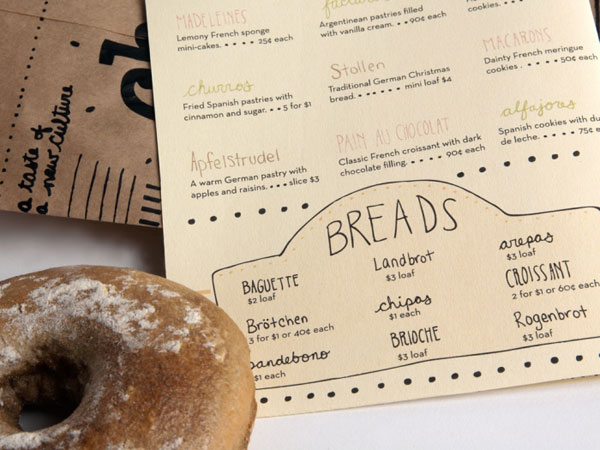 a taste of
a new culture
MADELEINES
Lemony French sponge
mini-cakes. . . . . 25¢ each
churros
Fried Spanish pastries with
cinnamon and sugar. . . 5 for $1
Apfelstrudel
A warm German pastry with
apples and raisins. . . . slice $3
Argentinean pastries filled
with vanilla cream. . . . 90¢ each
Stollen
Traditional German Christmas
bread. . . . . . . mini loaf $4
PAIN AU CHOCOLAT
Classic French croissant with dark
chocolate filling. . . . . 90¢ each
cookies. . . . . .
MACARONS
Dainty French meringue
cookies . . . . . . 50¢ each
alfajores
Spanish cookies with
de leche. . . . . 75¢
BREADS
BAGUETTE
$2 loaf
Brötchen
3 for $1 or 40¢ each
pandebono
$1 each
Landbrot
$3 loaf
chipas
$1 each
BRIOCHE
$3 loaf
arepas
$3 loaf
CROISSANT
2 for $1 or 60¢ each
Rogenbrot
$3 loaf